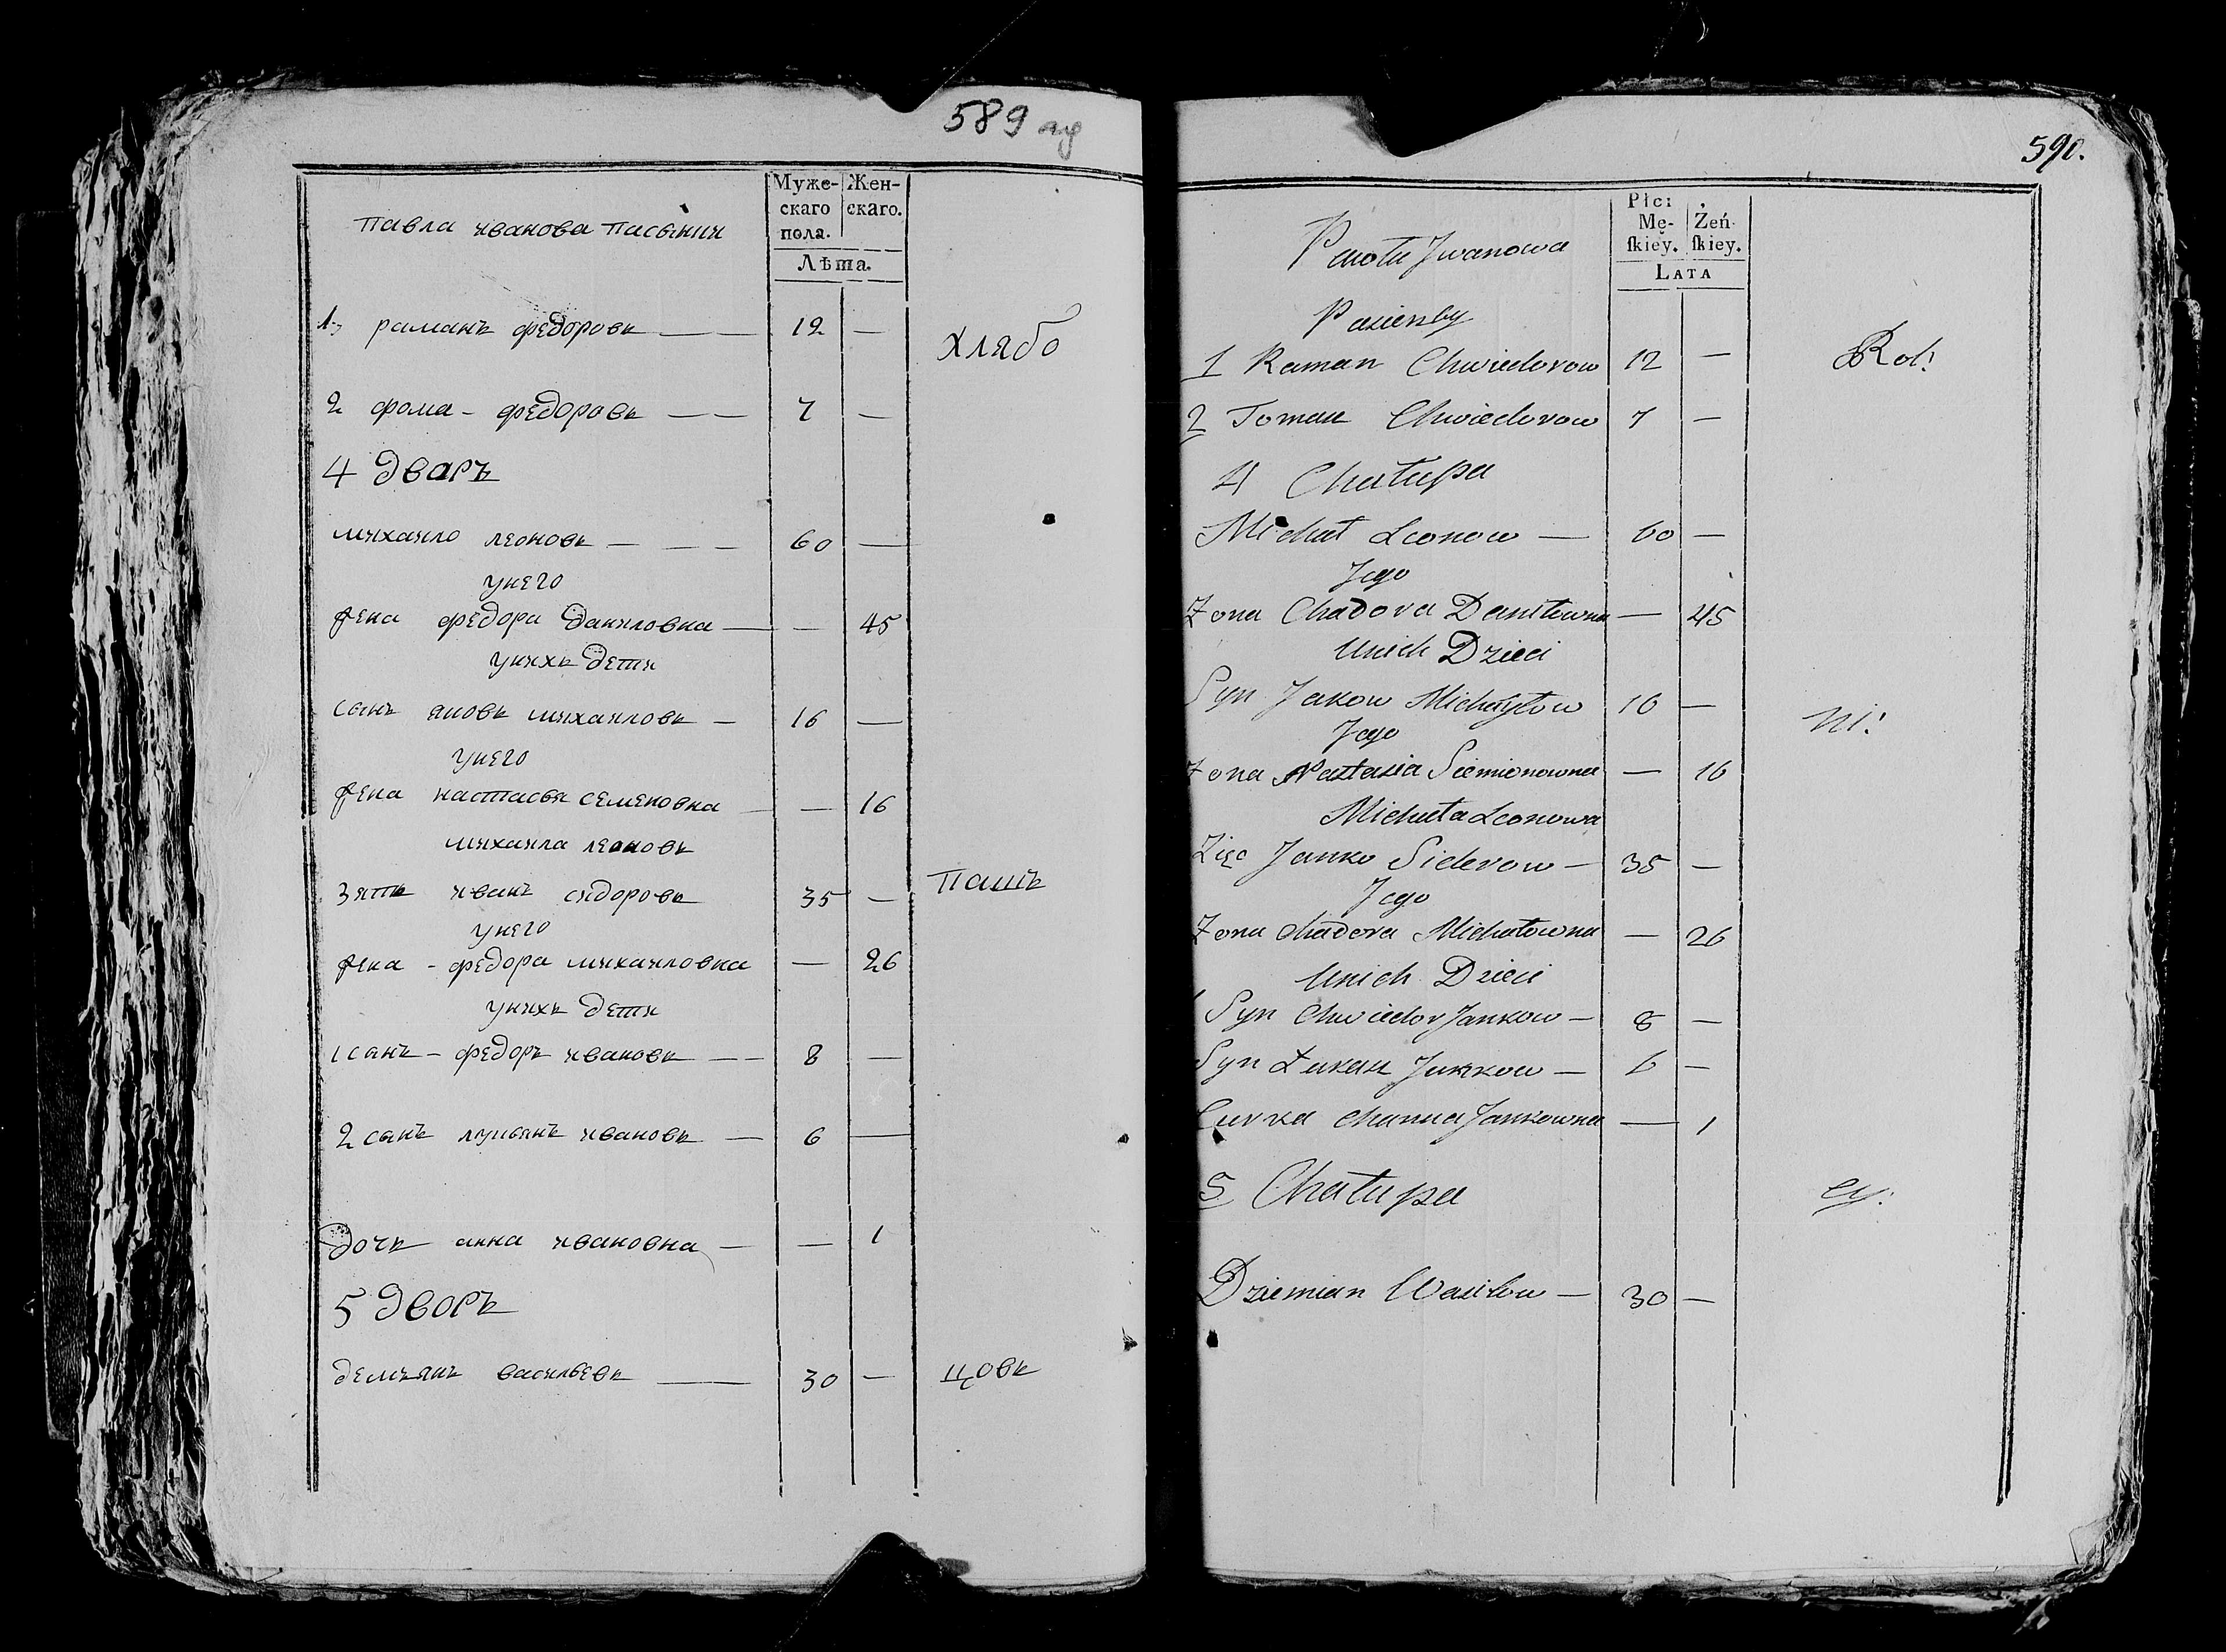 589
Муже-
скаго
пола.
Жен-
скаго.
Лѣта.
павла иванова пасынки
1, раманъ федоровъ — 12 —
хлябо
2 фома - федоровъ — 7 —
4 дваръ
михаило леоновъ — 60 —
унего
жена федора даниловна — — 45
унихъ дети
санъ яковъ михаиловъ — 16 —
унего
жена настасья семеновна — — 16
михаила леоновъ
зять иванъ сидоровъ 35 —
пашъ
унего
жена - федора михаиловна — 26
унихъ дети
1 санъ - федоръ ивановъ — 8 —
2 санъ лукьянъ ивановъ — 6 —
дочь анна ивановна — — 1
5 дворъ
демьянъ васильевъ — 30 —
цовъ
590.
Płci
Mę-
ſkiey.
Żeń-
ſkiey.
LATA
Pawła Jwanowa
Pasierzby
1 Raman Chwiedorow 12 —
Rol:
2 Tomasz Chwiedorow 7 —
4 Chałupa
Michał Leonow — 60 —
Jego
Zona Chadora Daniłowna — 45
Unich Dzieci
Syn Jakow Michayłow 16 —
ni:
Jego
Zona Nastasia Siemionowna — 16
Michała Leonowa
Zięc Janko Siderow — 35 —
Jego
Zona Chadora Michałowna — 26
Unich Dzieci
Syn Chwiedor Jankow — 8 —
Syn Łukasz Jankow — 6 —
Curka Channa Jankowna — 1
5 Chałupa
cy:
Dziemian Wasilow — 30 —